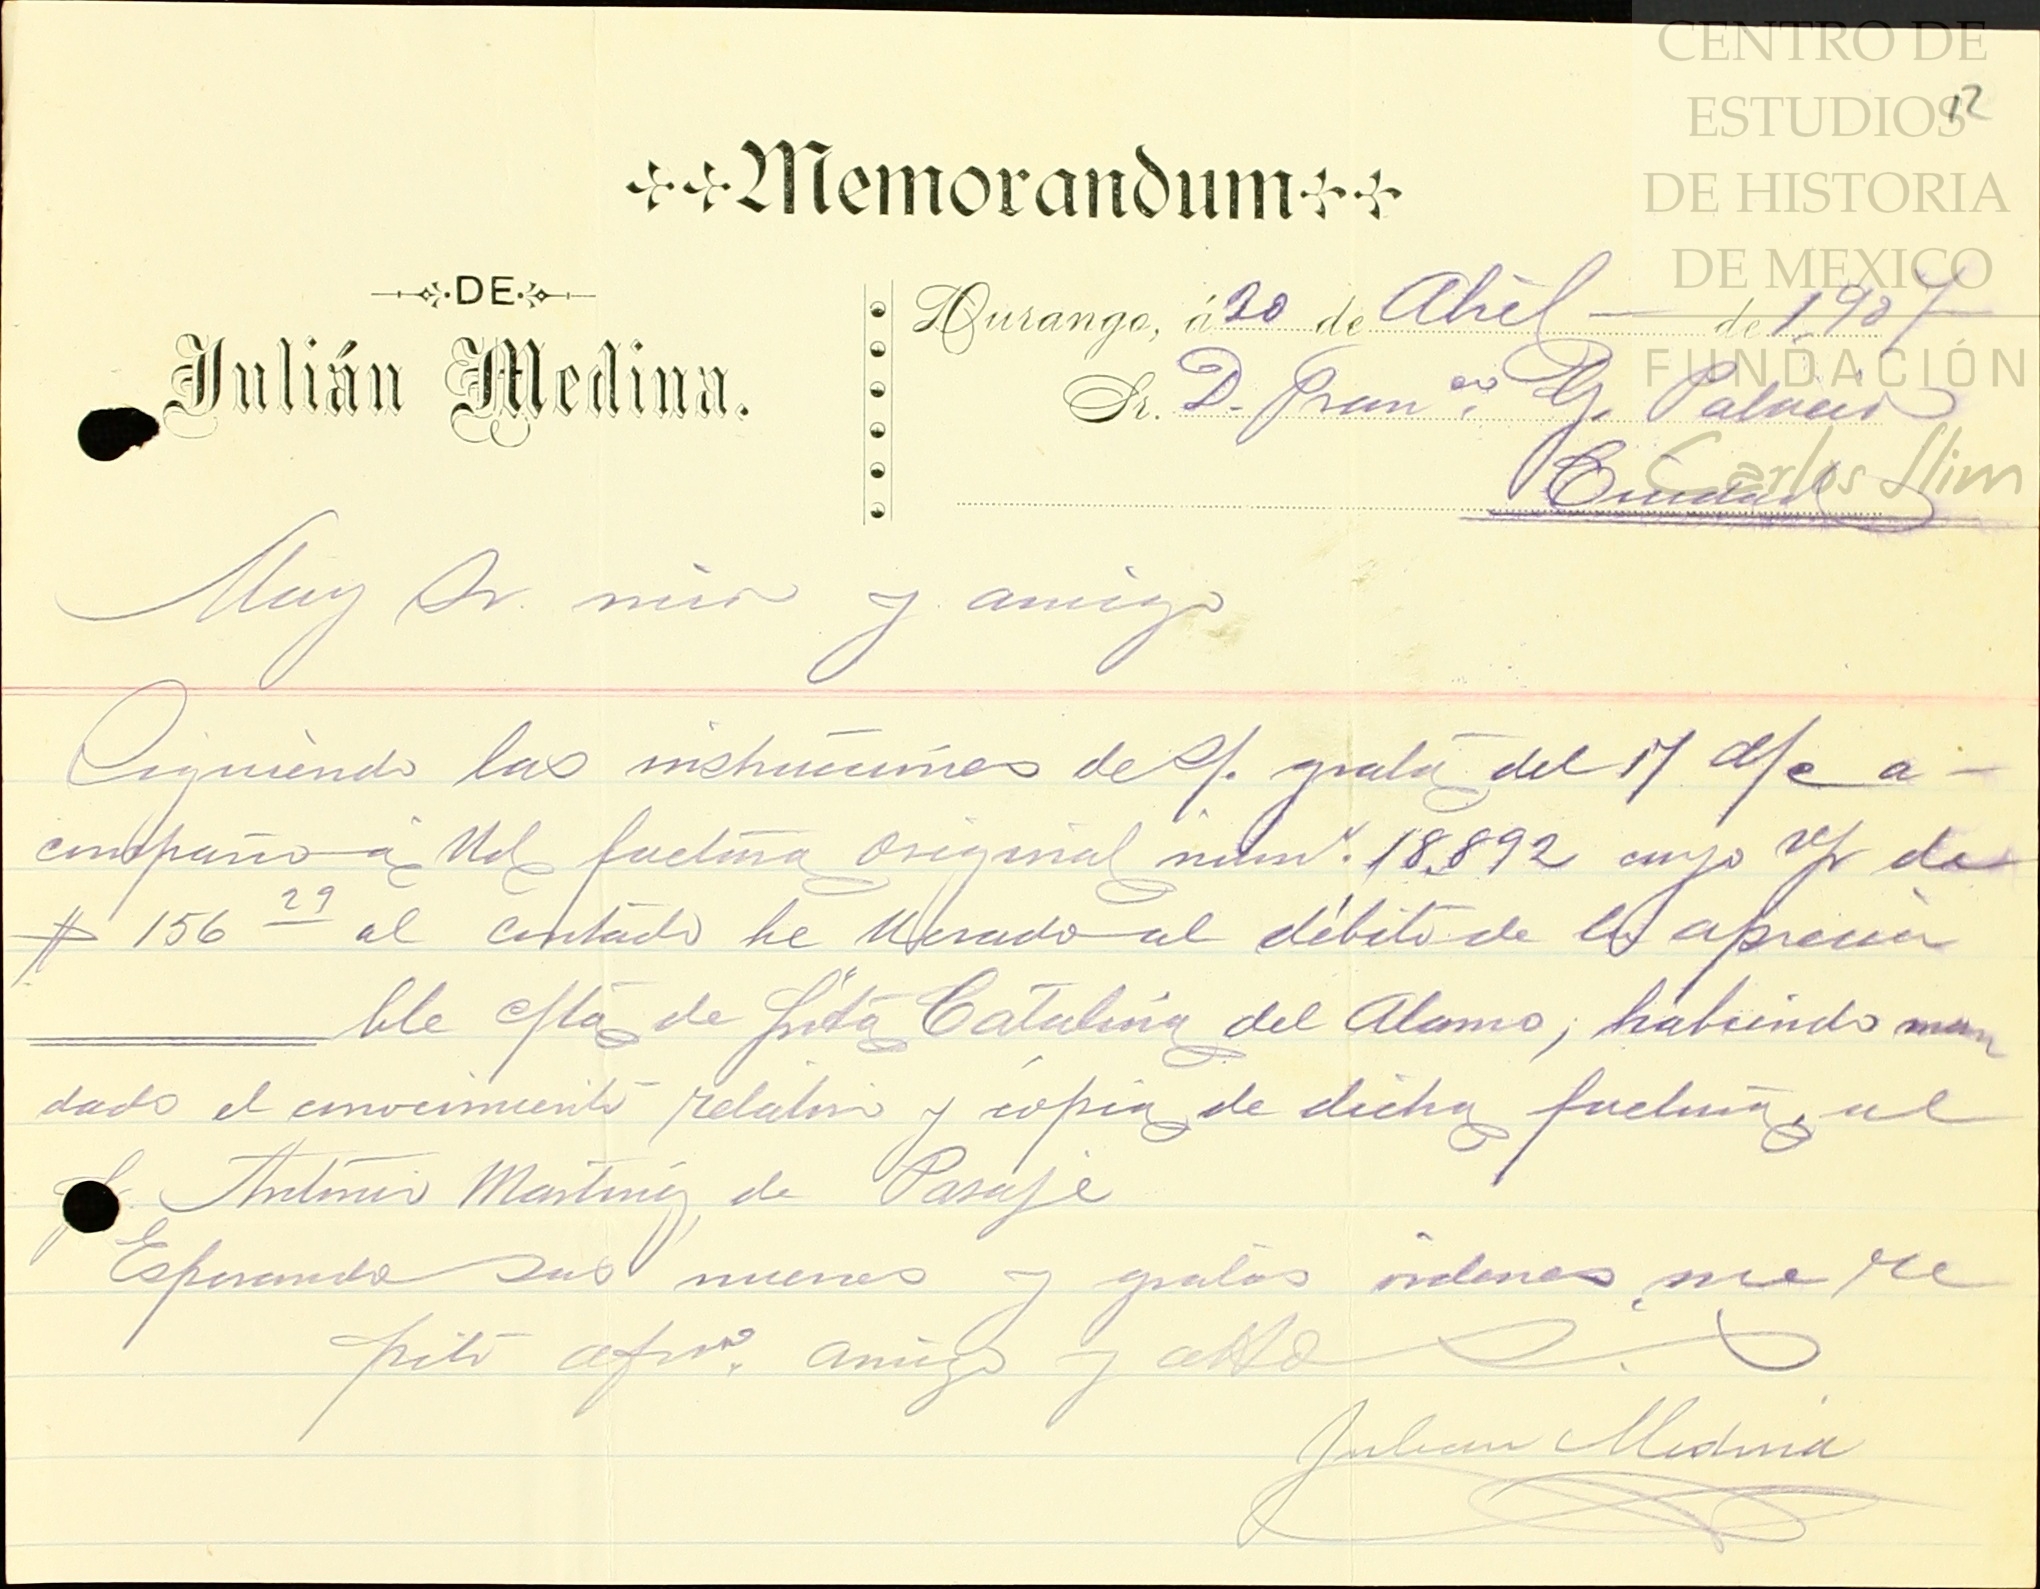 CENTRO DE
ESTUDIOS
DE HISTORIA
DE MEXICO
FUNDACIÓN
Carlos Slim
12
Memorandum
DE
Julián Medina.
Durango, á 20 de Abril de 1907
Sr. D. Franco. G. Palacio
Ciudad
Muy Sr. mio y amigo
Siguiendo las instrucciones de S/. grata del 17 d/c a-
compaño á Ud factura original núm. 18,892 cuyo v/r de
$ 156 29 al contado he llevado al débito de la aprecia
ble c/ta de Snta Catalina del Alamo, habiendo man
dado el conocimiento relativo y copia de dicha factura, al
Sr. Antonio Martinez de Pasaje
Esperando sus nuevas y gratas órdenes, me re
pito afmo. amigo y atto S. S.
Julian Medina